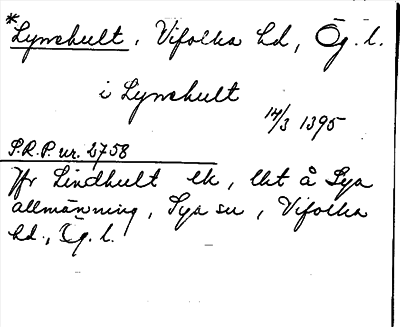 *Lynshult, Vifolka hd, Ög. l.
i Lynshult
14/3 1395
S.R.P. nr. 2758
Jfr Lindhult lk, lht å Sya
allmänning, Sya sn, Vifolka
hd., Ög. l.